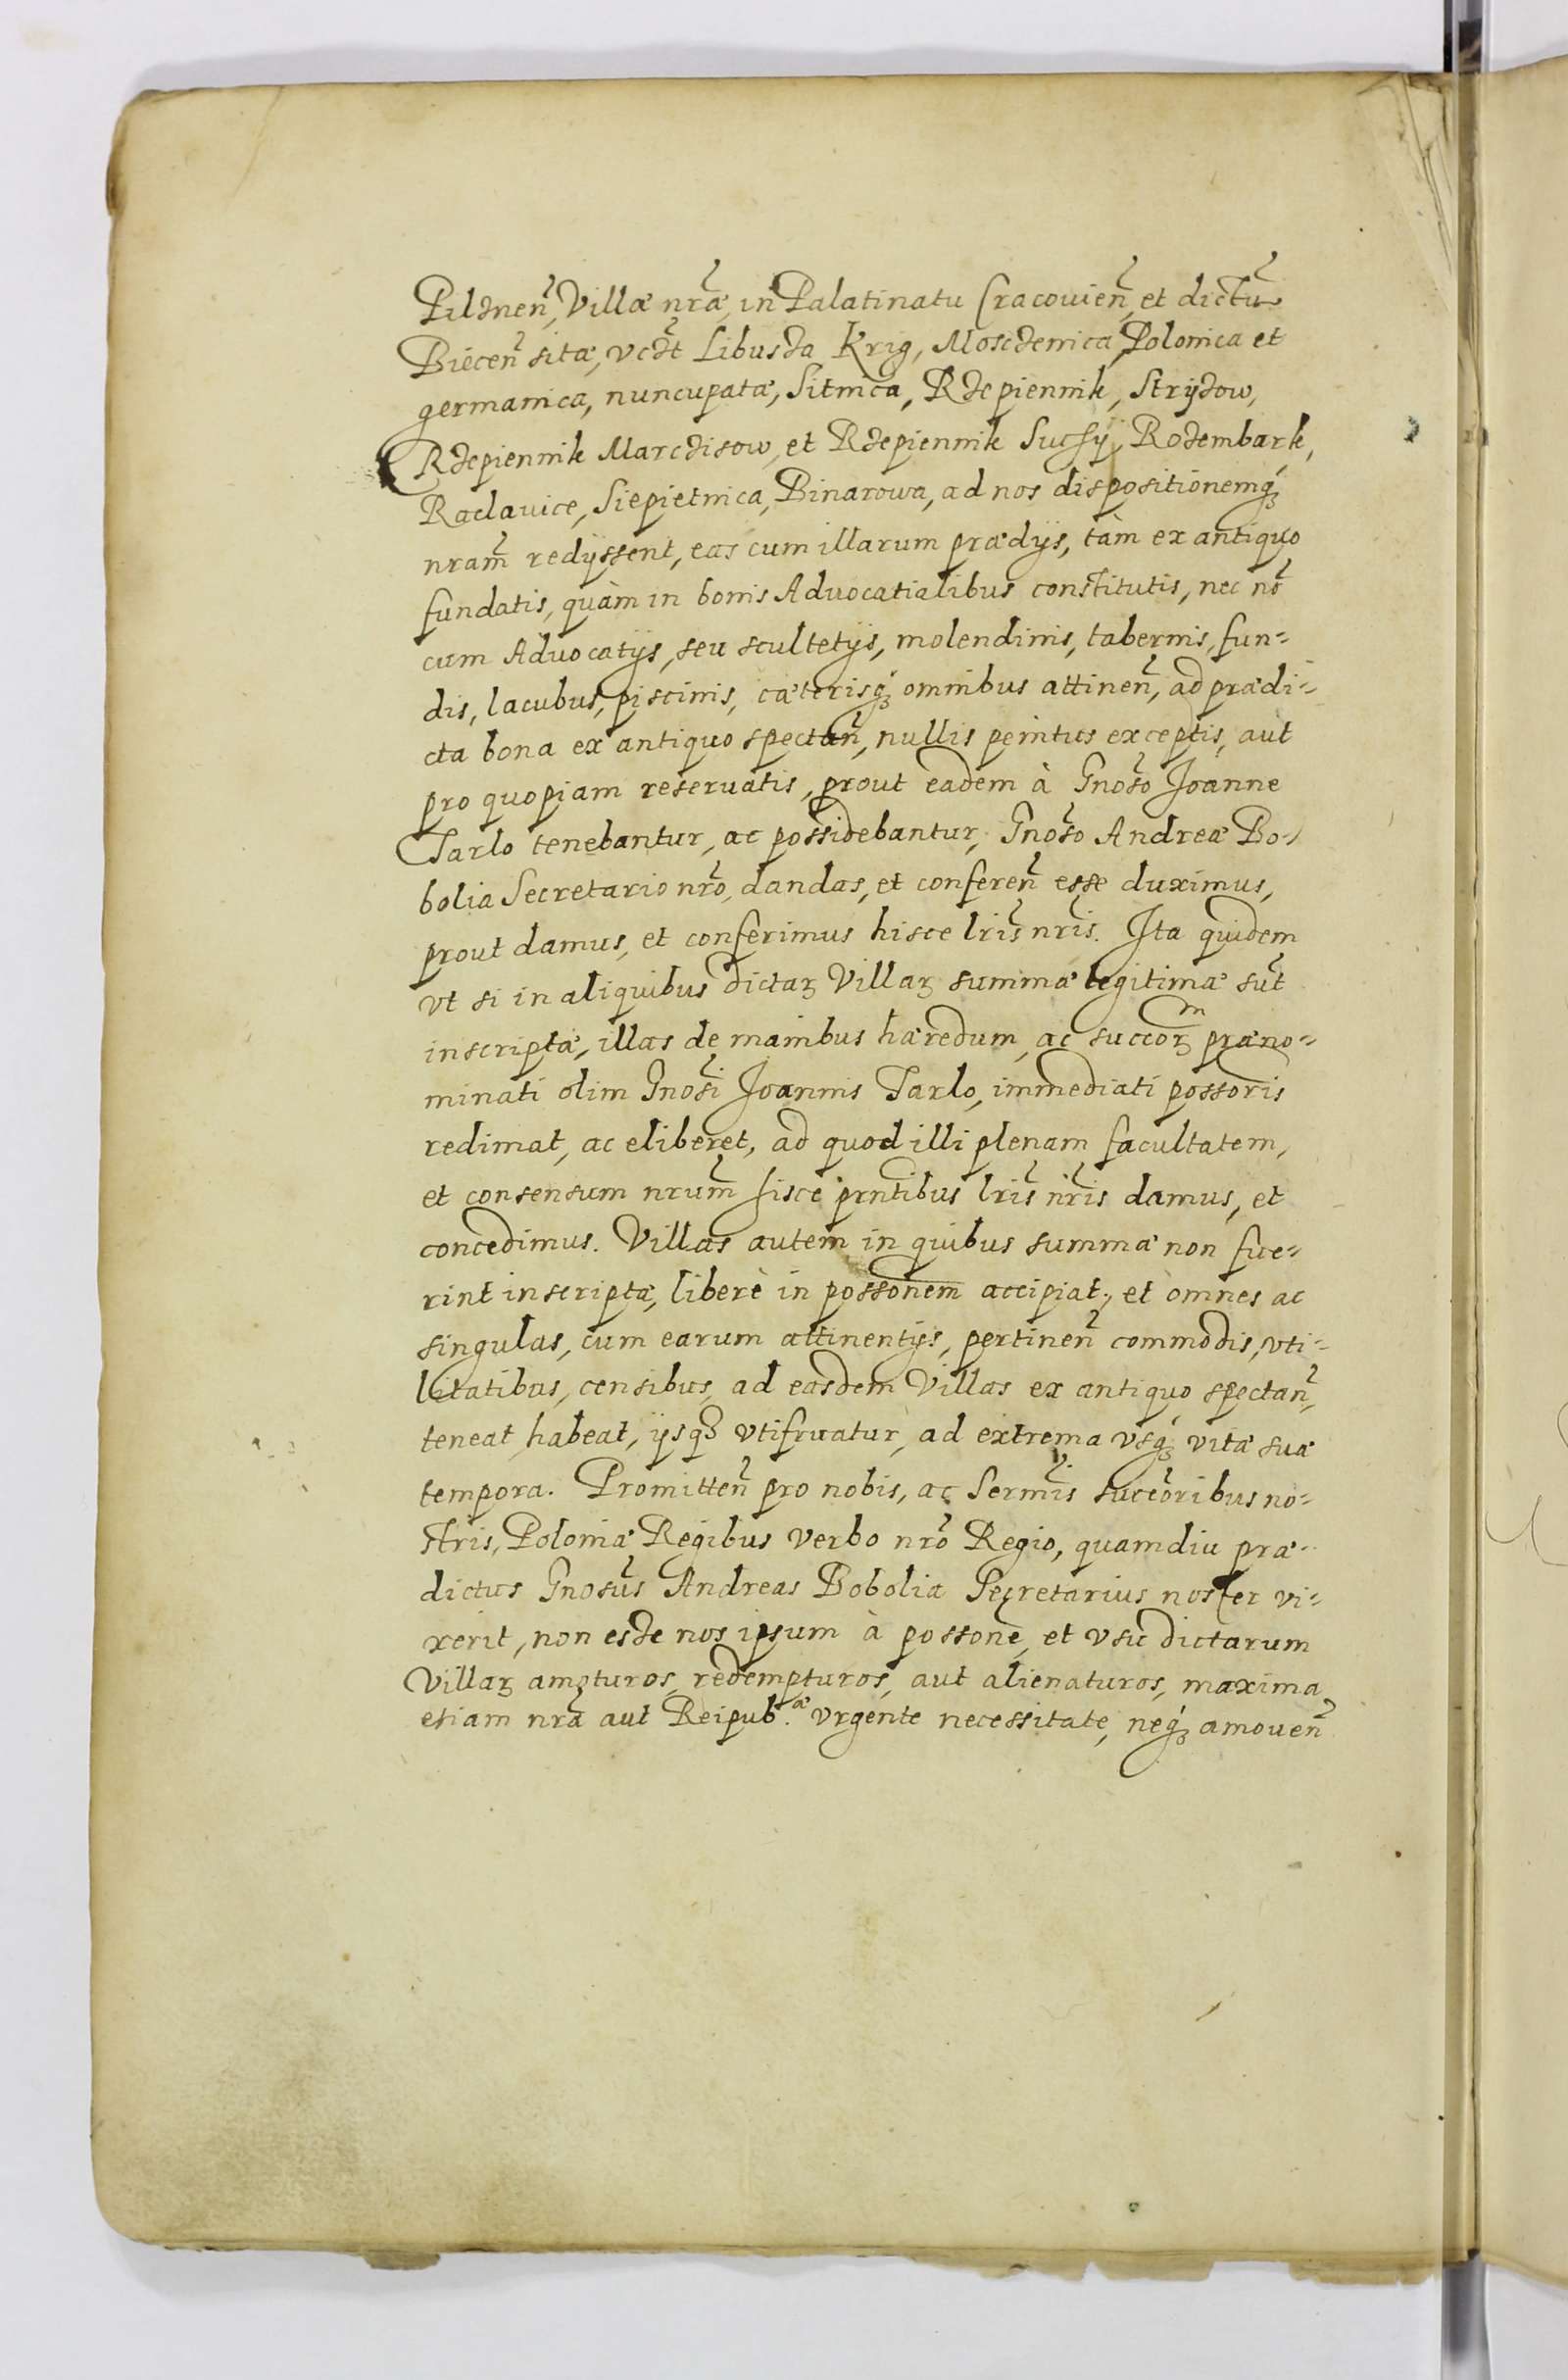 Pilznen̄, Villæ nræ, in Palatinatu Cracouien̄, et dictu
Biecen̄ sitæ, vczt Libusza Krig, Moszczenica Polonica et
germanica, nuncupatæ, Sitnica, Rzepiennik, Stryzow,
Rzepiennik Marczisow, et Rzepiennik Suchy, Rozembark,
Raclauice, Siepietnica, Binarowa, ad nos dispositionemqꝫ
nram̄ redyssent, eas cum illarum prædijs, tàm ex antiquo
fundatis, quàm in bonis Aduocatialibus constitutis, nec nō
cum Aduocatijs, seu scultetijs, molendinis, tabernis, fun=
dis, lacubus, piscinis, cæterisqꝫ omnibus attinen̄, ad prædi=
cta bona ex antiquo spectan̄, nullis penitus exceptis, aut
pro quopiam reseruatis, prout eadem à Gnoso Joanne
Tarlo tenebantur, ac possidebantur, Gnoso Andreæ Bo=
bolia Secretario nrō, dandas, et conferen̄ esse duximus,
prout damus, et conferimus hisce lris nris. Ita quidem
vt si in aliquibus dictaꝝ Villaꝝ summæ legitimæ sūt
inscriptæ, illas de manibus hæredum, ac succoꝝm præno=
minati olim Gnosi Joannis Tarlo, immediati possoris
redimat, ac eliberet, ad quod illi plenam facultatem,
et consensum nrum̄ hisce prntibus lris nris damus, et
concedimus. Villas autem in quibus summæ non fue=
rint inscriptæ, liberè in possonem accipiat, et omnes ac
singulas, cum earum attinentijs, pertinen̄ commodis, vti=
litatibus, censibus, ad easdem Villas ex antiquo spectan̄,
teneat, habeat, ijsqꝫ vtifruatur, ad extrema vsqꝫ vitæ suæ
tempora. Promitten̄ pro nobis, ac Sermis succoribus no=
stris, Poloniæ Regibus verbo nrō Regio, quamdiu præ=
dictus Gnosus Andreas Bobolia Secretarius noster vi=
xerit, non esse nos ipsum à possone, et vsu dictarum
Villaꝝ amoturos, redempturos, aut alienaturos, maxima
etiam nrā aut Reipub.æ vrgente necessitate, neqꝫ amouen̄